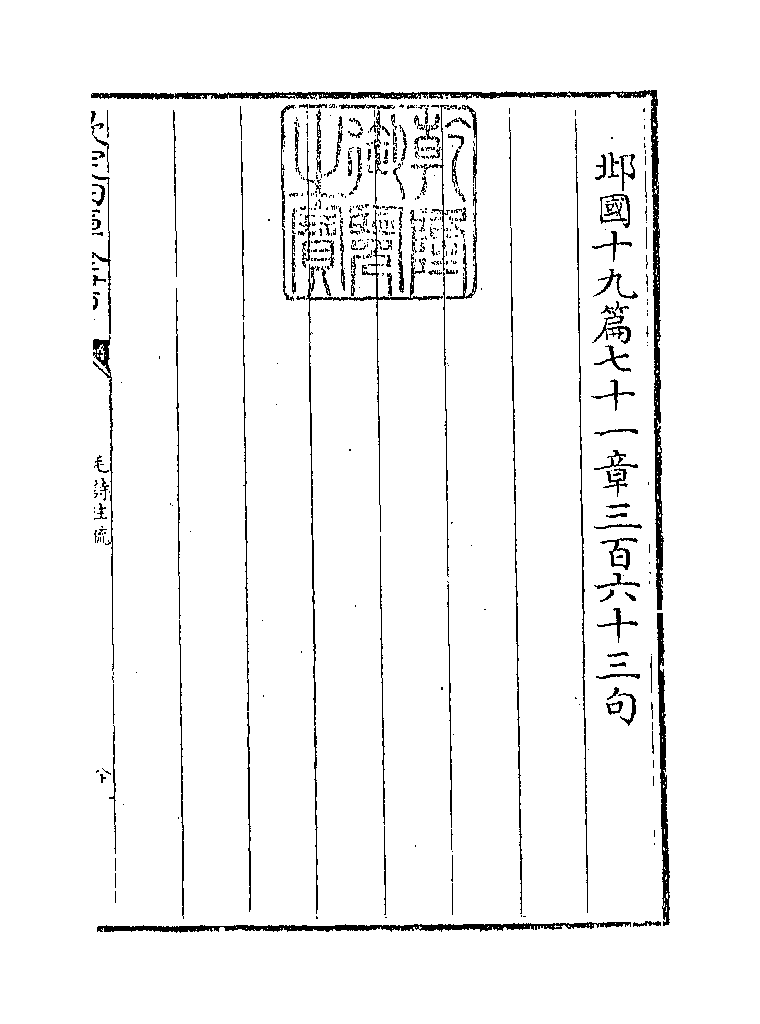 邶國十九篇七十一章三百六十三句
乾隆
御覽
之寶
欽定四庫全書
毛詩注疏